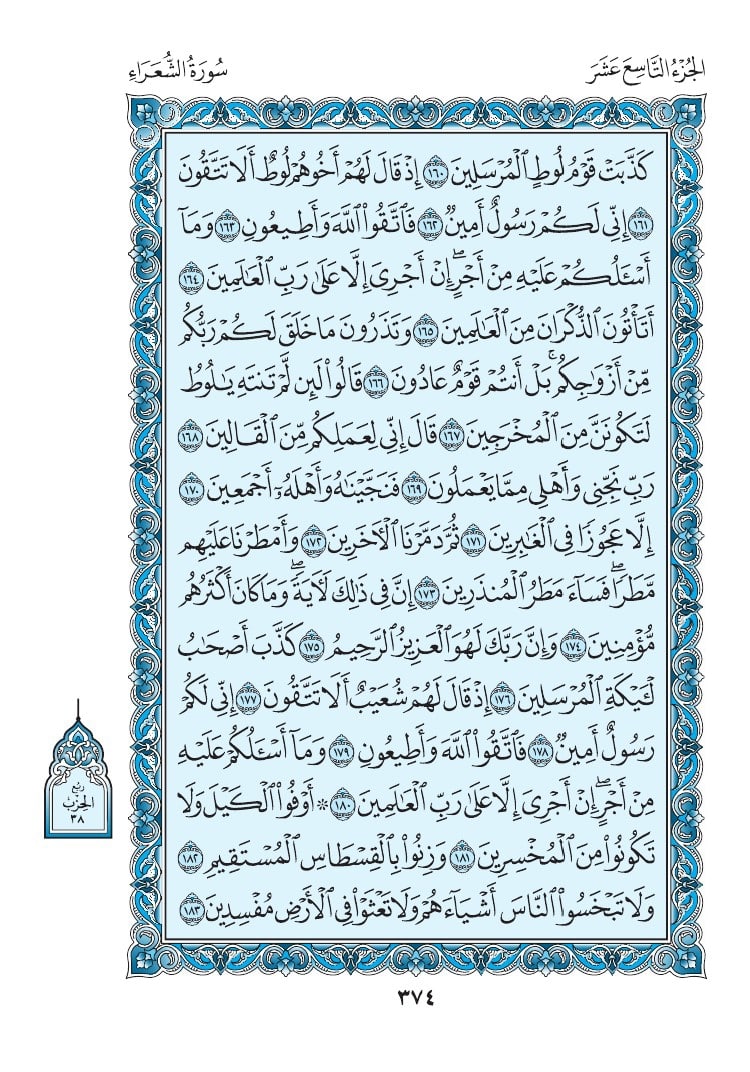 الجُزْءُ التَّاسِعَ عَشَرَ
سُورَةُ الشُّعَرَاءِ
كَذَّبَتْ قَوْمُ لُوطٍ ٱلْمُرْسَلِينَ ١٦٠ إِذْ قَالَ لَهُمْ أَخُوهُمْ لُوطٌ أَلَا تَتَّقُونَ
١٦١ إِنِّي لَكُمْ رَسُولٌ أَمِينٌ ١٦٢ فَٱتَّقُوا۟ ٱللَّهَ وَأَطِيعُونِ ١٦٣ وَمَآ
أَسْـَٔلُكُمْ عَلَيْهِ مِنْ أَجْرٍۖ إِنْ أَجْرِىَ إِلَّا عَلَىٰ رَبِّ ٱلْعَـٰلَمِينَ ١٦٤
أَتَأْتُونَ ٱلذُّكْرَانَ مِنَ ٱلْعَـٰلَمِينَ ١٦٥ وَتَذَرُونَ مَا خَلَقَ لَكُمْ رَبُّكُم
مِّنْ أَزْوَٰجِكُمۚ بَلْ أَنتُمْ قَوْمٌ عَادُونَ ١٦٦ قَالُوا۟ لَئِن لَّمْ تَنتَهِ يَـٰلُوطُ
لَتَكُونَنَّ مِنَ ٱلْمُخْرَجِينَ ١٦٧ قَالَ إِنِّى لِعَمَلِكُم مِّنَ ٱلْقَالِينَ ١٦٨
رَبِّ نَجِّنِى وَأَهْلِى مِمَّا يَعْمَلُونَ ١٦٩ فَنَجَّيْنَـٰهُ وَأَهْلَهُۥٓ أَجْمَعِينَ ١٧٠
إِلَّا عَجُوزًا فِى ٱلْغَـٰبِرِينَ ١٧١ ثُمَّ دَمَّرْنَا ٱلْـَٔاخَرِينَ ١٧٢ وَأَمْطَرْنَا عَلَيْهِم
مَّطَرًاۖ فَسَآءَ مَطَرُ ٱلْمُنذَرِينَ ١٧٣ إِنَّ فِى ذَٰلِكَ لَـَٔايَةًۖ وَمَا كَانَ أَكْثَرُهُم
مُّؤْمِنِينَ ١٧٤ وَإِنَّ رَبَّكَ لَهُوَ ٱلْعَزِيزُ ٱلرَّحِيمُ ١٧٥ كَذَّبَ أَصْحَـٰبُ
لْـَٔيْكَةِ ٱلْمُرْسَلِينَ ١٧٦ إِذْ قَالَ لَهُمْ شُعَيْبٌ أَلَا تَتَّقُونَ ١٧٧ إِنِّى لَكُمْ
رَسُولٌ أَمِينٌ ١٧٨ فَٱتَّقُوا۟ ٱللَّهَ وَأَطِيعُونِ ١٧٩ وَمَآ أَسْـَٔلُكُمْ عَلَيْهِ
مِنْ أَجْرٍۖ إِنْ أَجْرِىَ إِلَّا عَلَىٰ رَبِّ ٱلْعَـٰلَمِينَ ١٨٠ ۞ أَوْفُوا۟ ٱلْكَيْلَ وَلَا
تَكُونُوا۟ مِنَ ٱلْمُخْسِرِينَ ١٨١ وَزِنُوا۟ بِٱلْقِسْطَاسِ ٱلْمُسْتَقِيمِ ١٨٢
وَلَا تَبْخَسُوا۟ ٱلنَّاسَ أَشْيَآءَهُمْ وَلَا تَعْثَوْا۟ فِى ٱلْأَرْضِ مُفْسِدِينَ ١٨٣
ربع
الحزب
٣٨
٣٧٤